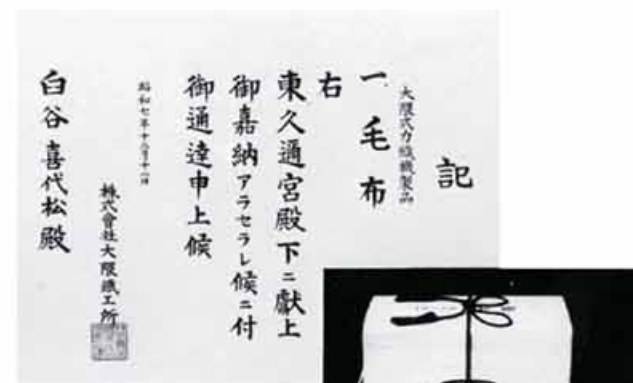 記
大隈式力織機製品
一毛布
右
東久邇宮殿下ニ献上
御嘉納アラセラレ候ニ付
御通達申上候
昭和七年十二月十一日
株式會社大隈鐵工所
臼谷喜代松殿